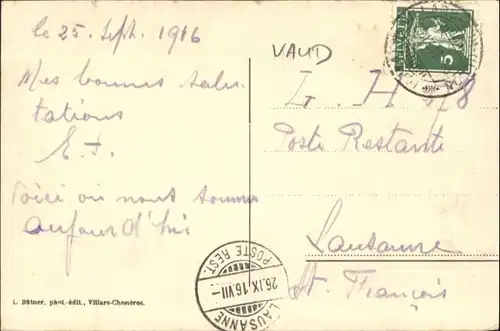 le 25. Sept. 1916
Mes bonnes salu-
tations
E. J.
Voici où nous sommes
aujourd'hui
L. Büttner, phot.-édit., Villars-Chesières.
VAUD
HELVETIA
5
L. H. 478
Poste Restante
Lausanne
St. François
POSTE REST.
26.IX.16.VII-
LAUSANNE